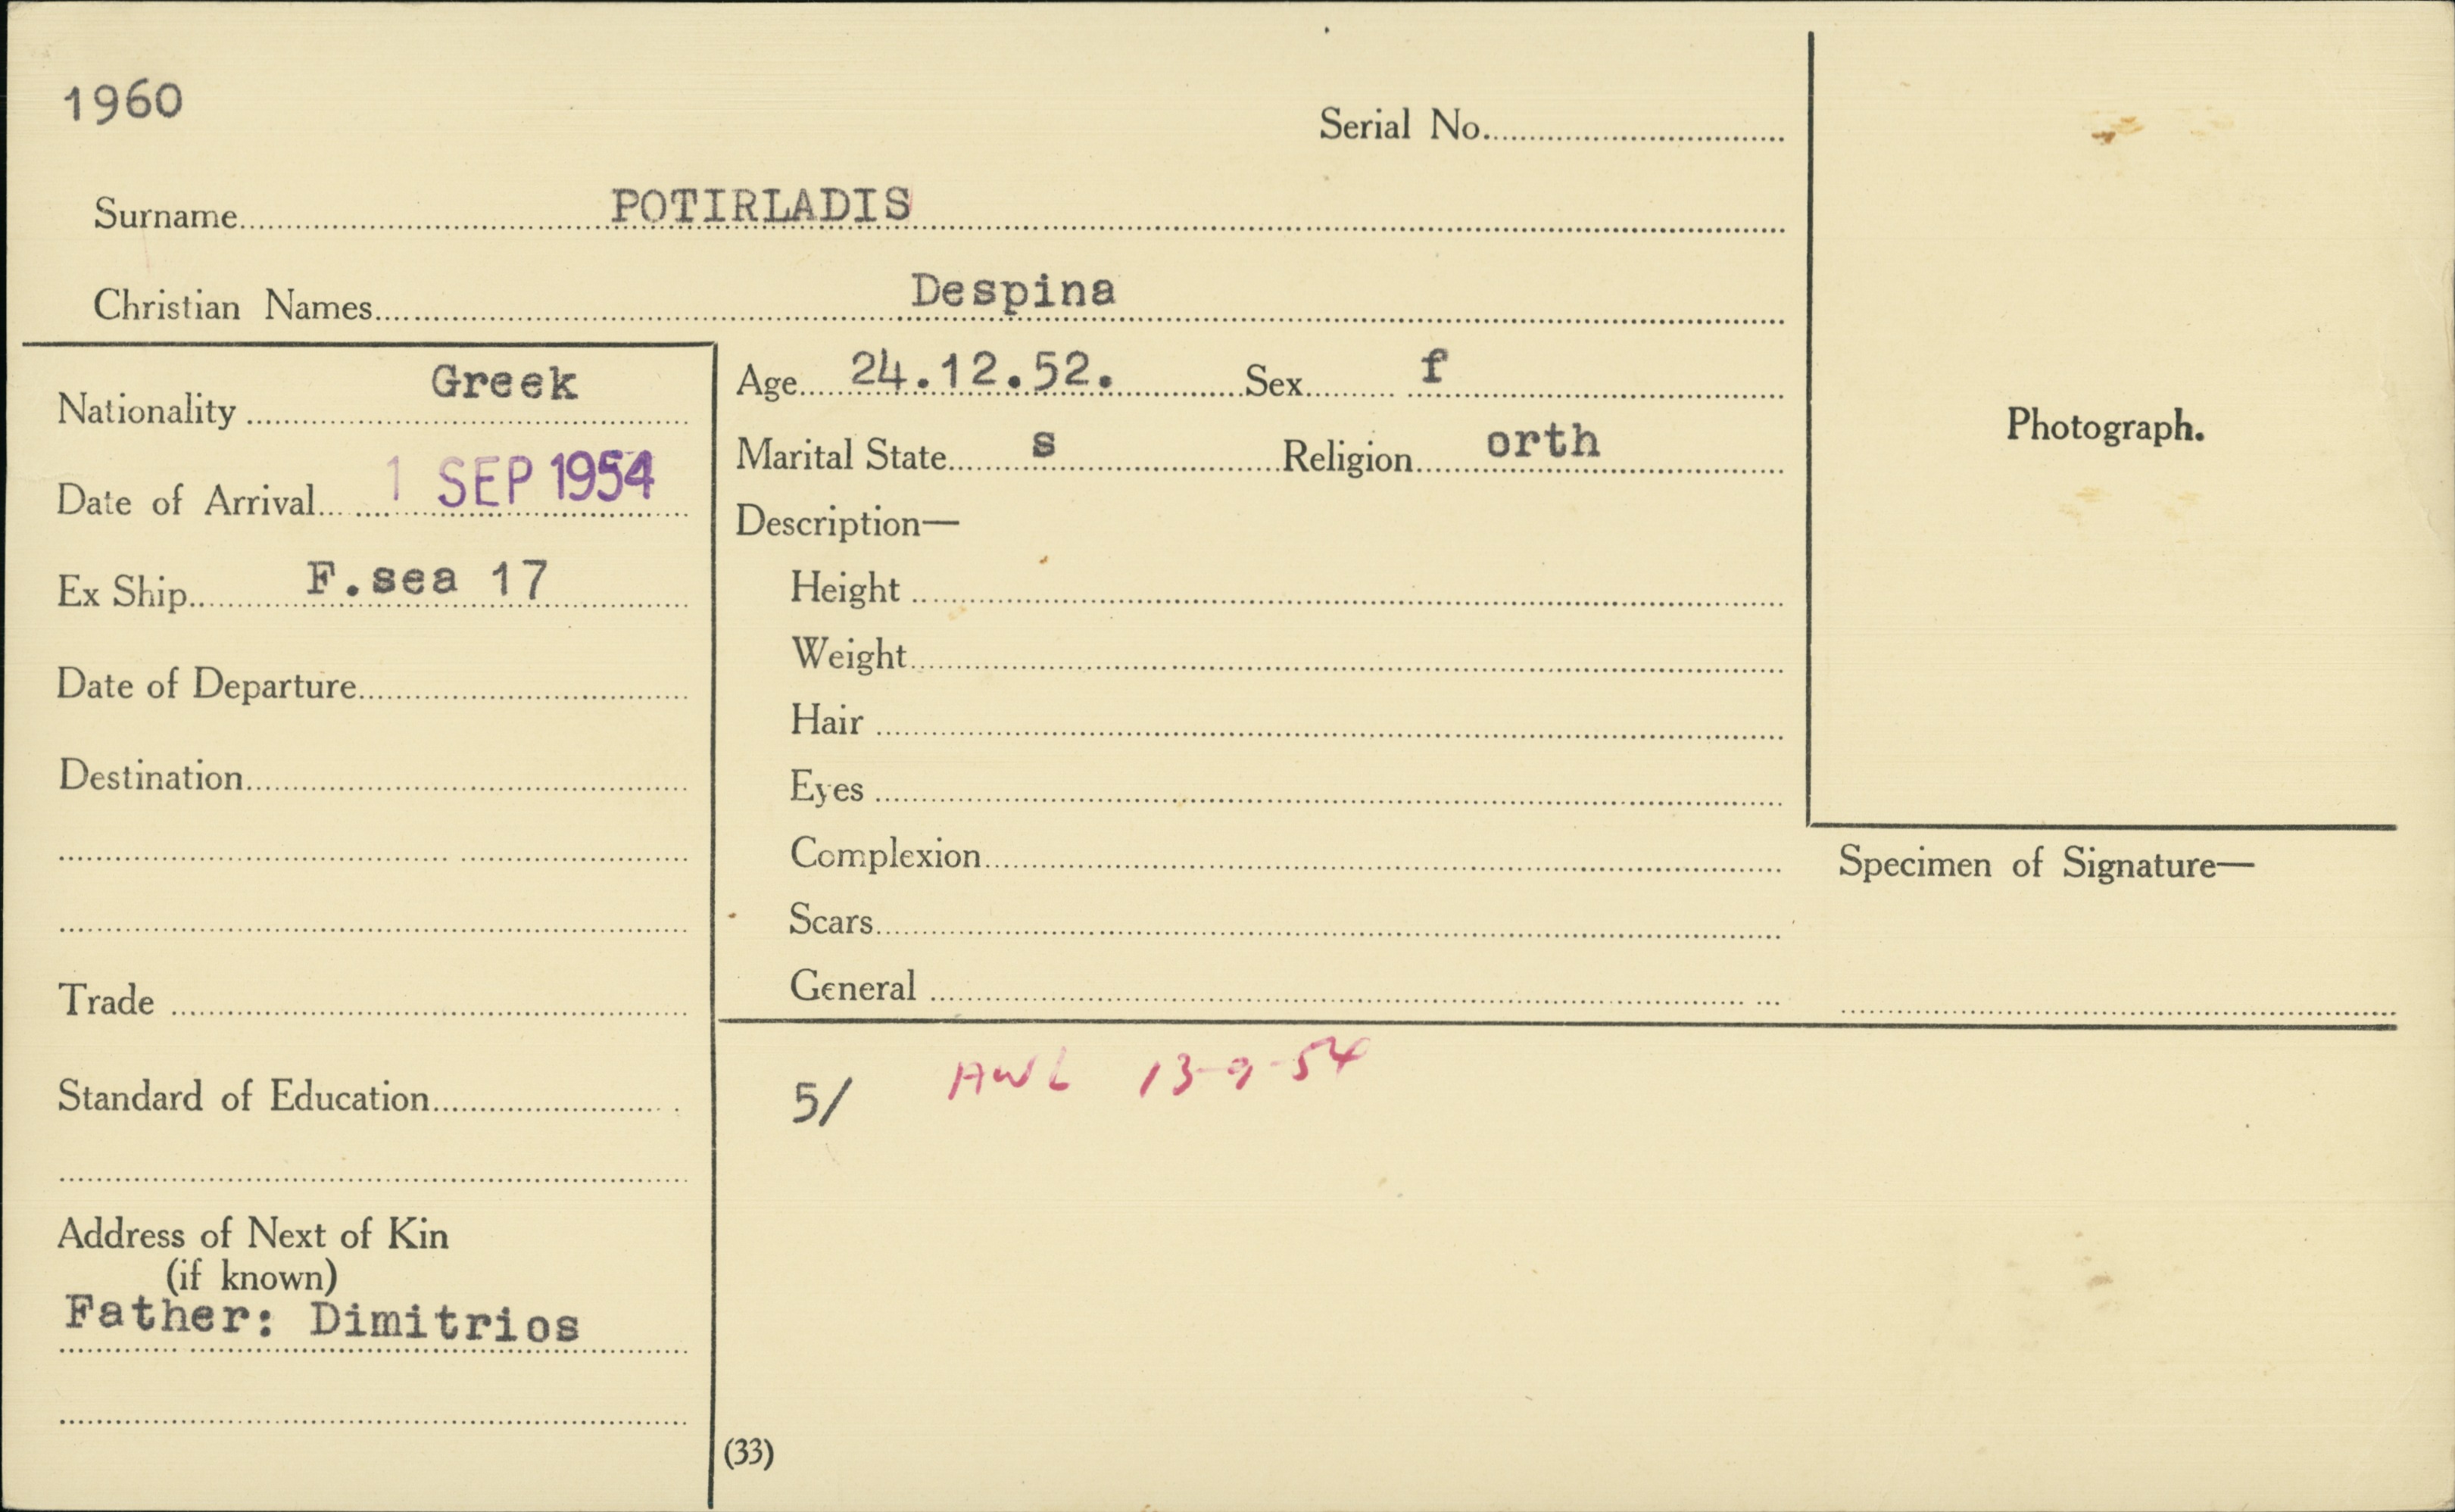 1960
Serial No.
Surname POTIRLADIS
Christian Names Despina
Nationality Greek
Date of Arrival 1 SEP 1954
Ex Ship F.sea 17
Date of Departure
Destination
Trade
Standard of Education
Address of Next of Kin
(if known)
Father: Dimitrios
Age 24.12.52. Sex f
Marital State s Religion orth
Description—
Height
Weight
Hair
Eyes
Complexion
Scars
General
5/ AWL 13-9-54
(33)
Photograph.
Specimen of Signature—